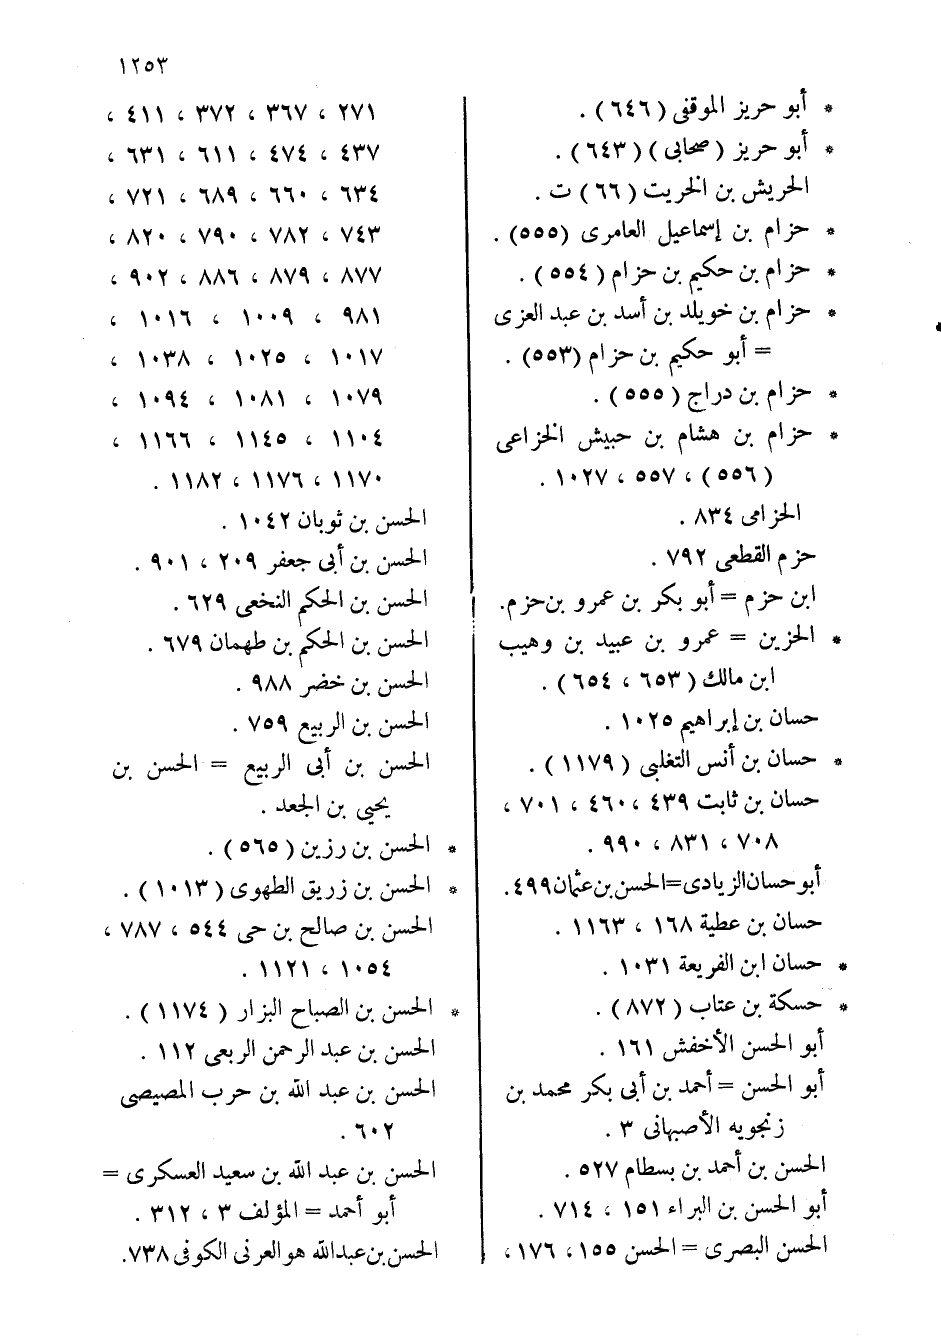 ١٢٥٣
* أبو حريز الموقفى (٦٤٦) .
* أبو حريز (صحابى) (٦٤٣) .
الحريش بن الخريت (٦٦) ت .
* حزام بن إسماعيل العامرى (٥٥٥) .
* حزام بن حكيم بن حزام (٥٥٤) .
* حزام بن خويلد بن أسد بن عبد العزى
= أبو حكيم بن حزام (٥٥٣) .
* حزام بن دراج (٥٥٥) .
* حزام بن هشام بن حبيش الخزاعى
(٥٥٦) ، ٥٥٧ ، ١٠٢٧ .
الحزامى ٨٣٤ .
حزم القطعى ٧٩٢ .
ابن حزم = أبو بكر بن عمرو بن حزم .
* الحزين = عمرو بن عبيد بن وهيب
ابن مالك (٦٥٣ ، ٦٥٤) .
حسان بن إبراهيم ١٠٢٥ .
* حسان بن أنس التغلبى (١١٧٩) .
حسان بن ثابت ٤٣٩ ، ٤٦٠ ، ٧٠١ ،
٧٠٨ ، ٨٣١ ، ٩٩٠ .
أبو حسان الزيادى = الحسن بن عثمان ٤٩٩ .
حسان بن عطية ١٦٨ ، ١١٦٣ .
* حسان ابن الفريعة ١٠٣١ .
* حسكة بن عتاب (٨٧٢) .
أبو الحسن الأخفش ١٦١ .
أبو الحسن = أحمد بن أبى بكر محمد بن
زنجويه الأصبهانى ٣ .
الحسن بن أحمد بن بسطام ٥٢٧ .
أبو الحسن بن البراء ١٥١ ، ٧١٤ .
الحسن البصرى = الحسن ١٥٥ ، ١٧٦ ،
٢٧١ ، ٣٦٧ ، ٣٧٢ ، ٤١١ ،
٤٣٧ ، ٤٧٤ ، ٦١١ ، ٦٣١ ،
٦٣٤ ، ٦٦٠ ، ٦٨٩ ، ٧٢١ ،
٧٤٣ ، ٧٨٢ ، ٧٩٠ ، ٨٢٠ ،
٨٧٧ ، ٨٧٩ ، ٨٨٦ ، ٩٠٢ ،
٩٨١ ، ١٠٠٩ ، ١٠١٦ ،
١٠١٧ ، ١٠٢٥ ، ١٠٣٨ ،
١٠٧٩ ، ١٠٨١ ، ١٠٩٤ ،
١١٠٤ ، ١١٤٥ ، ١١٦٦ ،
١١٧٠ ، ١١٧٦ ، ١١٨٢ .
الحسن بن ثوبان ١٠٤٢ .
الحسن بن أبى جعفر ٢٠٩ ، ٩٠١ .
الحسن بن الحكم النخعى ٦٢٩ .
الحسن بن الحكم بن طهمان ٦٧٩ .
الحسن بن خضر ٩٨٨ .
الحسن بن الربيع ٧٥٩ .
الحسن بن أبى الربيع = الحسن بن
يحيى بن الجعد .
* الحسن بن رزين (٥٦٥) .
* الحسن بن زريق الطهوى (١٠١٣) .
الحسن بن صالح بن حى ٥٤٤ ، ٧٨٧ ،
١٠٥٤ ، ١١٢١ .
* الحسن بن الصباح البزار (١١٧٤) .
الحسن بن عبد الرحمن الربعى ١١٢ .
الحسن بن عبد الله بن حرب المصيصى
٦٠٢ .
الحسن بن عبد الله بن سعيد العسكرى =
أبو أحمد = المؤلف ٣ ، ٣١٢ .
الحسن بن عبدالله هو العرنى الكوفى ٧٣٨ .